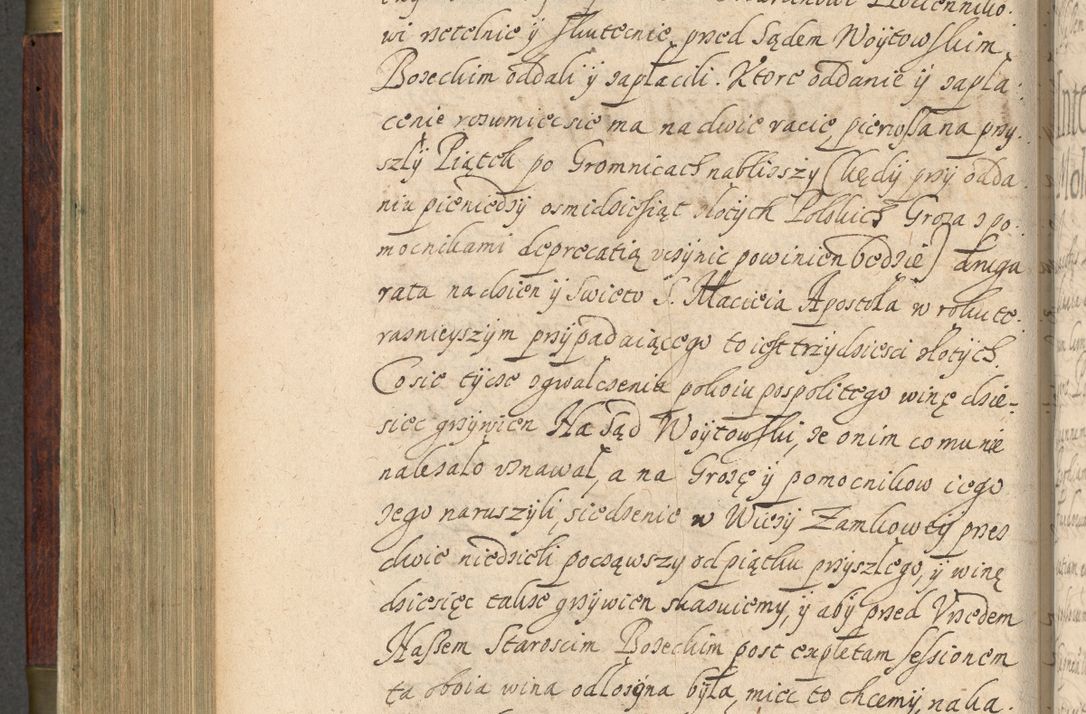 wi rzetelnie ÿ skutecznie przed Sądem Woÿtowskim
Bozeckim oddali ÿ zapłacili. Ktore oddanie ÿ zapła:
cenie rozumiec sie ma na dwie racie, pierwsza na przy:
szłÿ Piątek po Gromnicach nabliższy (kędÿ przÿ odda:
niu pieniedzÿ osmidziesiąt złotÿch Polskich Groza z po:
mocnikami deprecatią vczÿnic powinien bedzie) druga
rata na dzien ÿ Swieto S. Macieia Apostoła w roku te:
raznieyszÿm przÿpadaiącego to iest trzÿdziesci złotÿch.
Co sie tÿcze zgwałczenia pokoiu pospolitego winę dzie=
siec grzÿwien Na Sąd Woÿtowski, ze o nim co mu nie
nalezało vznawał, a na Grozę ÿ pomocnikow iego
ze go naruszÿli, siedzenie w Wiezÿ Zamkowtÿ przez
dwie niedzieli począwszy od piątku przyszłego, ÿ winę
dziesięc takze grzÿwien skazuiemy, ÿ abÿ przed Vrzedem
Naszem Staroscim Bozeckim post expletam sessionem
ta oboia wina odłozÿna bÿła, miec to chcemÿ, naka: